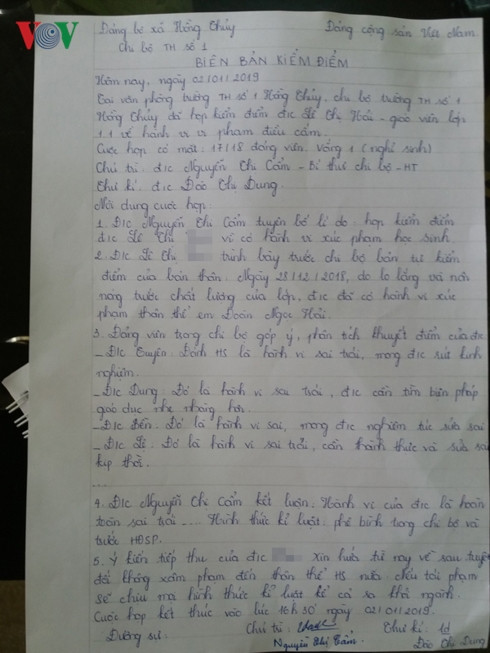 VOV
Đảng bộ xã Hồng Thủy
Đảng cộng sản Việt Nam
Chi bộ TH số 1
BIÊN BẢN KIỂM ĐIỂM
Hôm nay, ngày 02/01/2019
Tại văn phòng trường TH số 1 Hồng Thủy, chi bộ trường TH số 1
Hồng Thủy đã họp kiểm điểm đ/c Lê Thị Hải - giáo viên lớp
1.1 về hành vi vi phạm điều cấm.
Cuộc họp có mặt: 17/18 đảng viên. Vắng 1 (nghỉ sinh)
Chủ trì: đ/c Nguyễn Thị Cẩm - Bí thư chi bộ - HT
Thư kí: đ/c Đào Thị Dung.
Nội dung cuộc họp
1. Đ/c Nguyễn Thị Cẩm tuyên bố lí do họp kiểm điểm
đ/c Lê Thị vì có hành vi xúc phạm học sinh.
2. Đ/c Lê Thị trình bày trước chi bộ bản tự kiểm
điểm của bản thân. Ngày 28/12/2018, do lo lắng và nôn
nóng trước chất lượng của lớp, đ/c đã có hành vi xúc
phạm thân thể em Đoàn Ngọc Hải.
3. Đảng viên trong chi bộ góp ý, phân tích khuyết điểm của đ/c
- Đ/c Quyên: Đánh HS là hành vi sai trái, mong đ/c rút kinh
nghiệm.
- Đ/c Dung: Đó là hành vi sai trái, đ/c cần tìm biện pháp
giáo dục nhẹ nhàng hơn.
- Đ/c Bến: Đó là hành vi sai, mong đ/c nghiêm túc sửa sai
- Đ/c Lê: Đó là hành vi sai trái, cần thành thực và sửa sai
kịp thời.
...
4. Đ/c Nguyễn Thị Cẩm kết luận: Hành vi của đ/c là hoàn
toàn sai trái .... Hình thức kỉ luật: phê bình trong chi bộ và
trước HĐSP.
5. Ý kiến tiếp thu của đ/c Xin hứa từ nay về sau tuyệt
đối không xâm phạm đến thân thể HS nữa. Nếu tái phạm
sẽ chịu mọi hình thức kỉ luật kể cả sa thải ngành.
Cuộc họp kết thúc vào lúc 16h30 ngày 02/01/2019.
Đương sự:
Chủ trì:
Thư kí:
Nguyễn Thị Cẩm
Đào Thị Dung